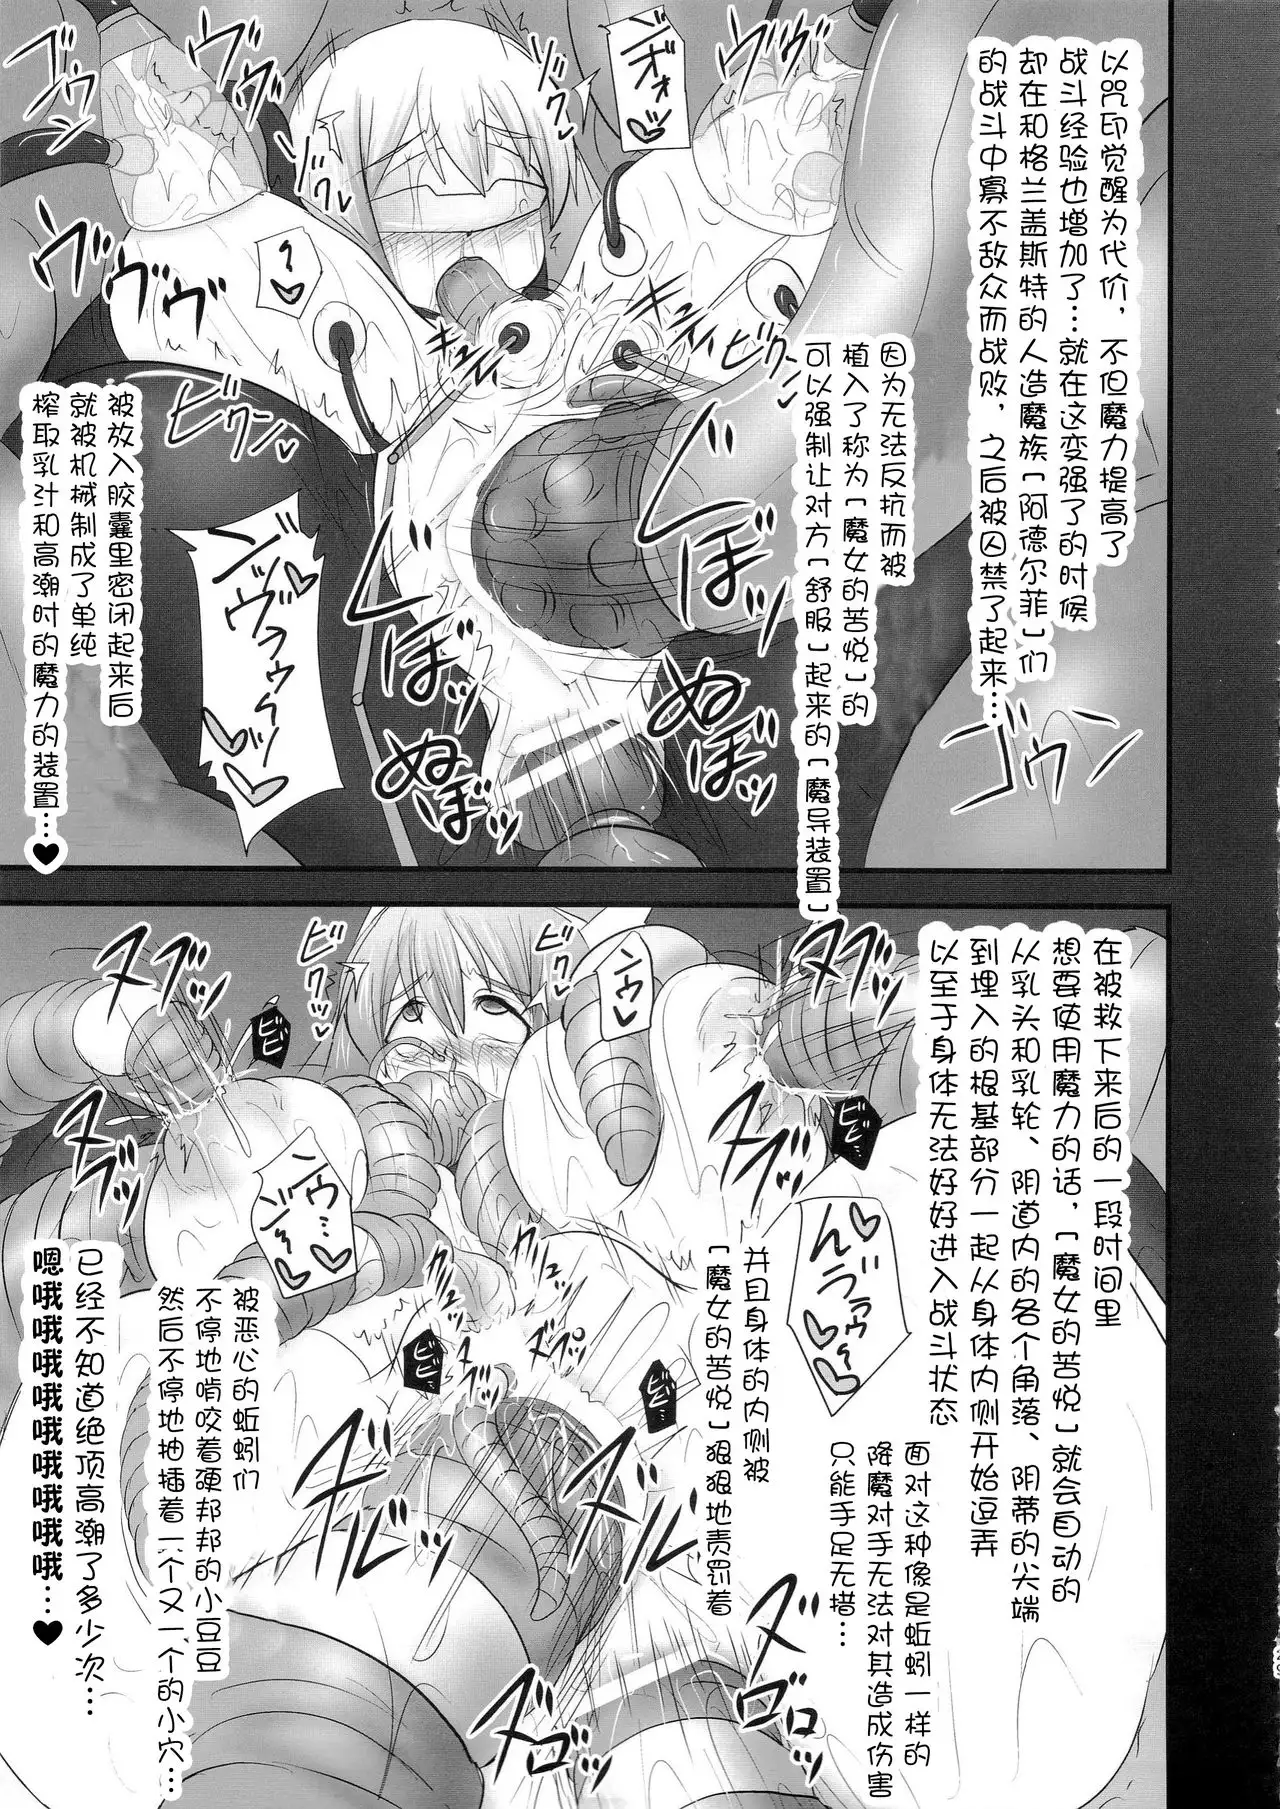 以咒印觉醒为代价，不但魔力提高了
战斗经验也增加了…就在这变强了的时候
却在和格兰盖斯特的人造魔族「阿德尔菲」们
的战斗中寡不敌众而战败，之后被囚禁了起来…
因为无法反抗而被
植入了称为「魔女的苦悦」的
可以强制让对方「舒服」起来的「魔导装置」
被放入胶囊里密闭起来后
就被机械制成了单纯
榨取乳汁和高潮时的魔力的装置…♥
ゴウン
ヴヴヴ
ヴヴヴ
ビクッ
ヴヴヴ
ビクン
ビクン
ゴウン
じぼぼ
じぼぼ
ぬぼっ
ぬぼっ
在被救下来后的一段时间里
想要使用魔力的话，「魔女的苦悦」就会自动的
从乳头和乳轮、阴道内的各个角落、阴蒂的尖端
到埋入的根基部分一起从身体内侧开始逗弄
以至于身体无法好好进入战斗状态
面对这种像是蚯蚓一样的
降魔对手无法对其造成伤害
只能手足无措…
并且身体的内侧被
「魔女的苦悦」狠狠地责罚着
被恶心的蚯蚓们
不停地啃咬着硬邦邦的小豆豆
然后不停地抽插着一个又一个的小穴…
已经不知道绝顶高潮了多少次…
嗯哦哦哦哦哦哦哦哦哦…♥
ヌブッ
ビクッ
ビクッ
ビビ
ビビ
ビビ
ビビ
ズブッ